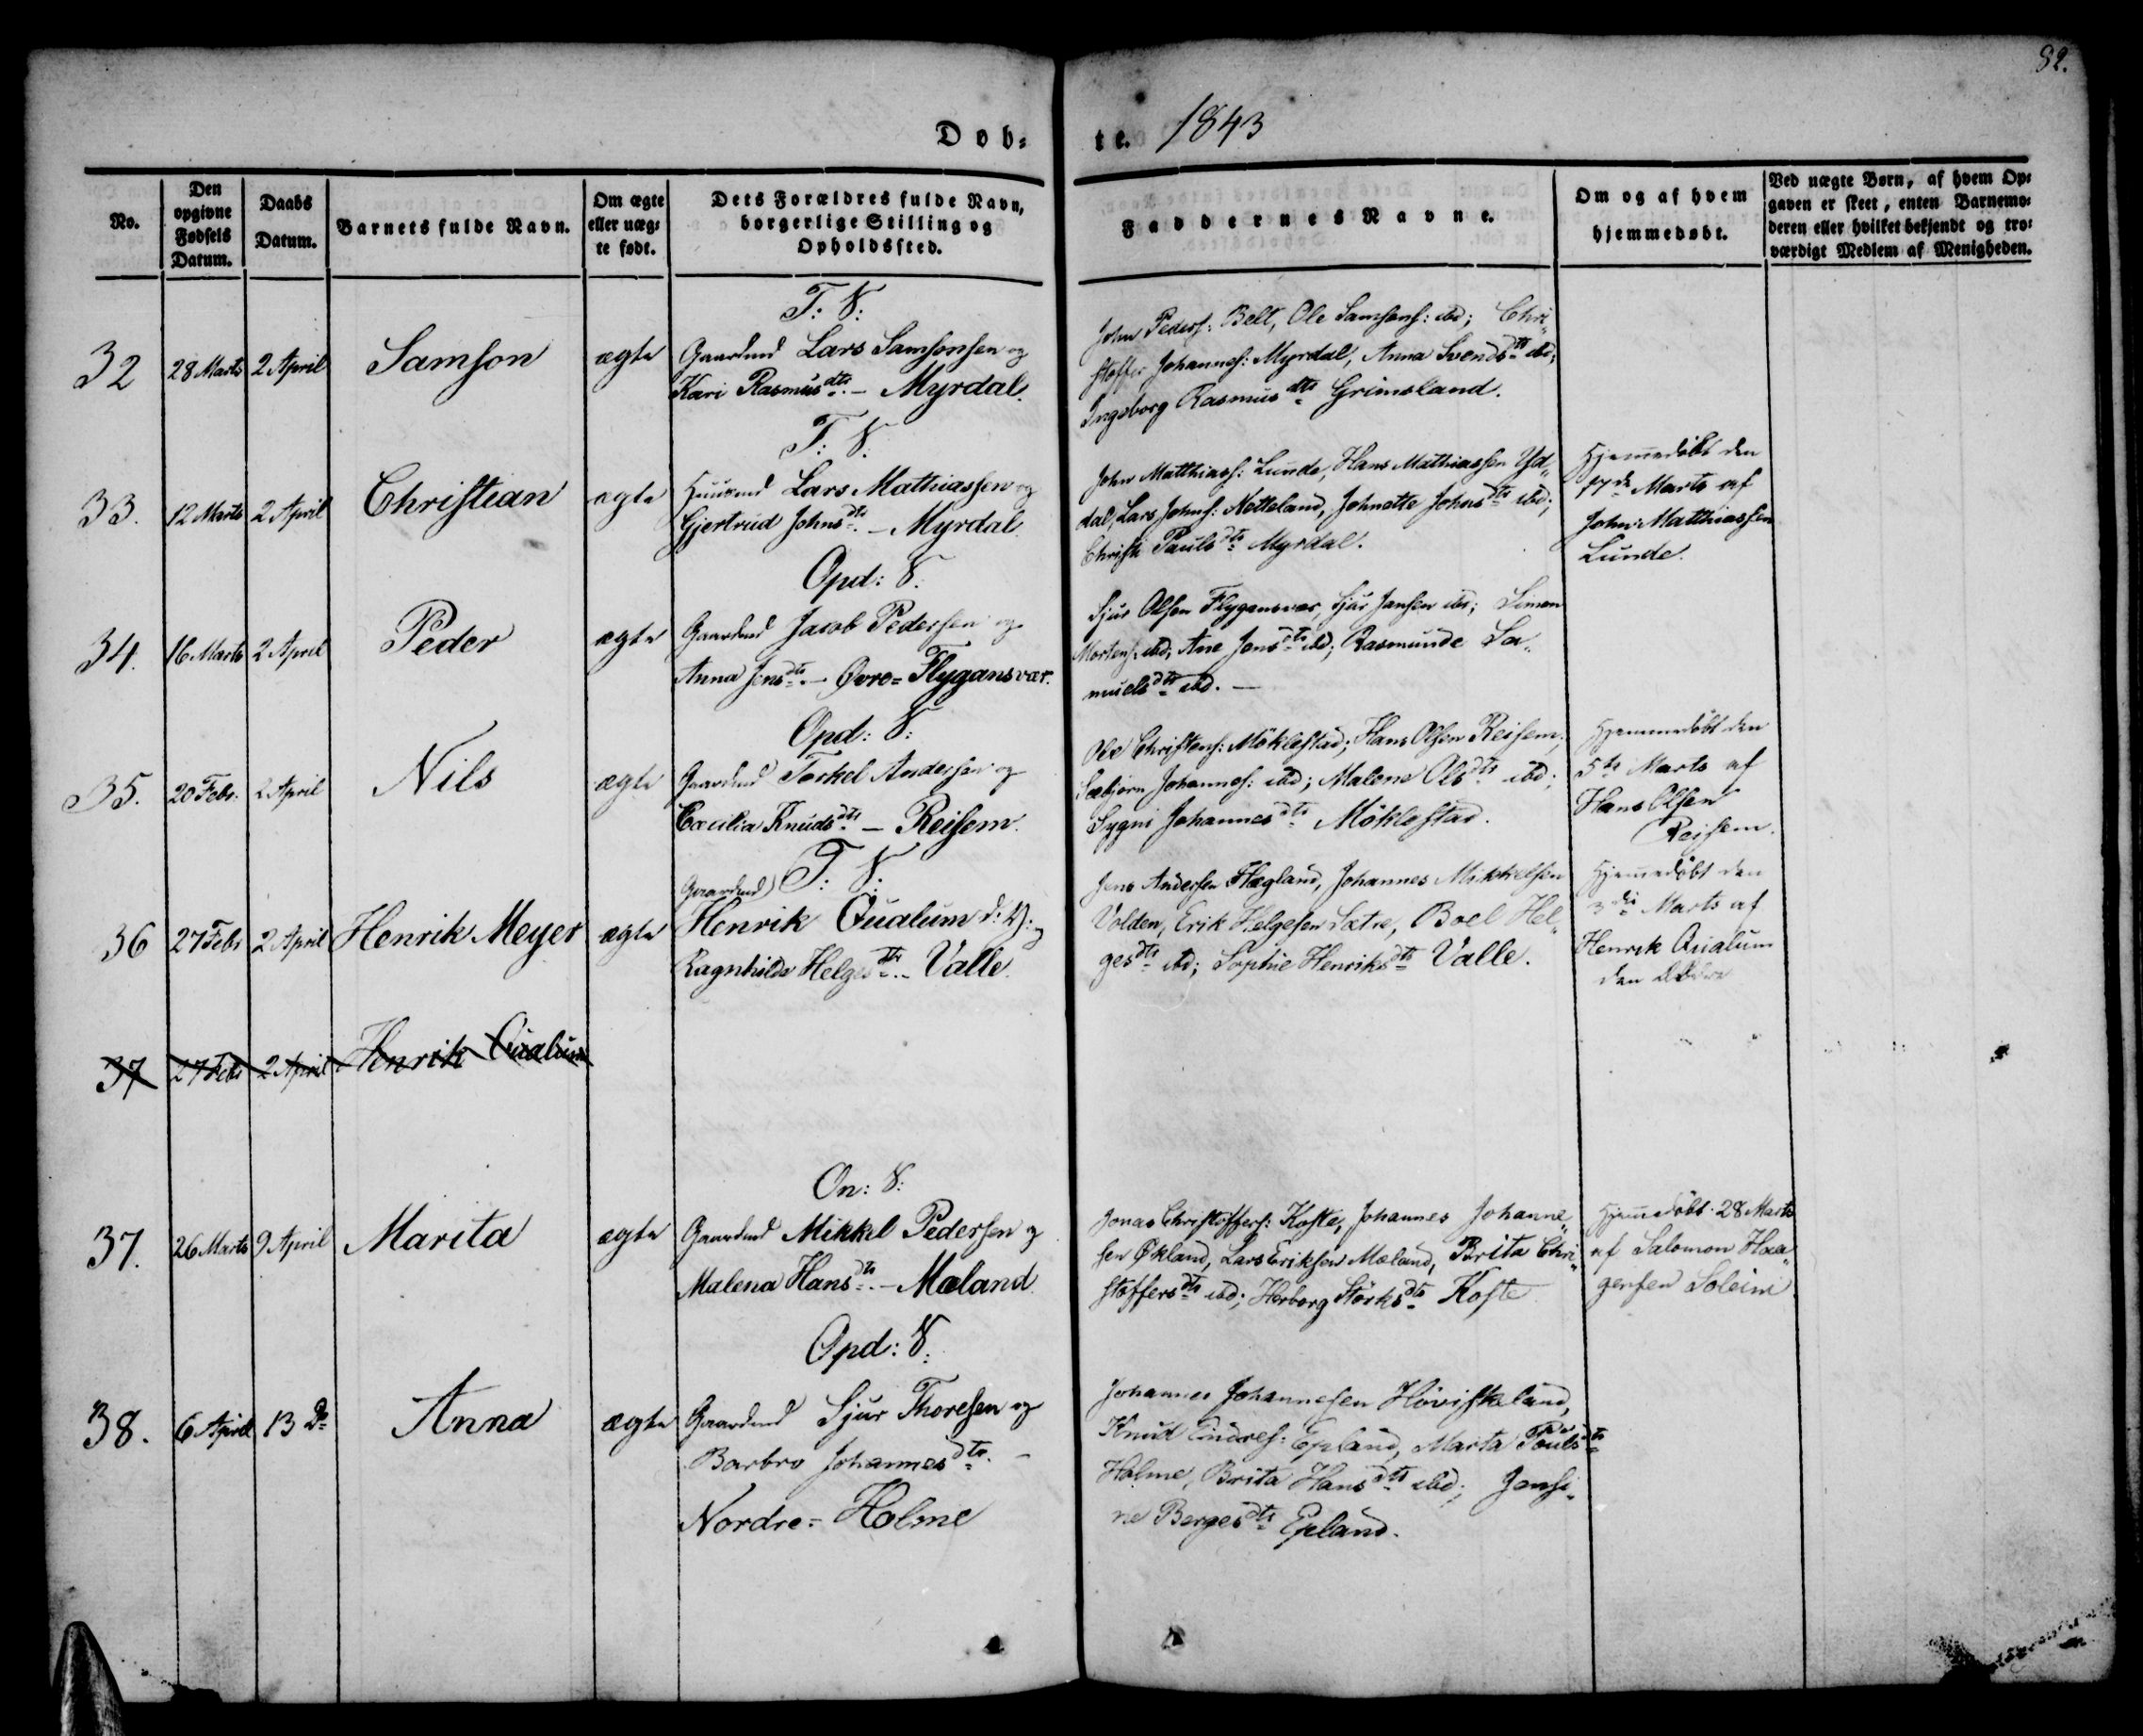 82.
Døb- te. 1843
No.
Den opgivne Fødsels Datum.
Daabs Datum.
Barnets fulde Navn.
Om ægte eller uægte født.
Dets Forældres fulde Navn,
borgerlige Stilling og
Opholdssted.
Faddernes Navne.
Om og af hvem
hjemmedøbt.
Ved uægte Børn, af hvem Op-
gaven er skeet, enten Barnemo-
deren eller hvilket bekjendt og tro-
værdigt Medlem af Menigheden.
T: S:
32 28 Marts 2 April Samson ægte
Gaardmd Lars Samsonsen og
Kari Rasmusdtr. – Myrdal.
John Peders: Belt, Ole Samsons: ibd; Chri-
stoffer Johannes: Myrdal, Anna Svendsdtr ibd;
Ingeborg Rasmusdtr Grimsland.
T: S:
33. 12 Marts 2 April Christian ægte
Huusmd Lars Mathiassen og
Gjertrud Johnsdtr. – Myrdal
John Matthias: Lunde, Hans Mathiassen Yd-
dal, Lars Johns: Netteland, Johnette Johnsdtr ibd;
Christi Paulsdtr Myrdal.
Hjemmedøbt den
17de Marts af
John Matthiassen
Lunde.
Opd: S:
34. 16 Marts 2 April Peder ægte
Gaardmd Jacob Pedersen og
Anna Jensdtr. – Øvre= Flygansvær.
Sjur Olsen Flygansvær, Sjur Jansen ibd; Simon
Mortens: ibd; Ane Jensdtr ibd; Rasmunde Sa-
muelsdtr ibd. –
Opd: S:
35. 20 Febr: 2 April Nils ægte
Gaardmd Torkel Andersen og
Cæcilia Knudsdtr. – Reisem.
Ole Christens: Møklestad; Hans Olsen Reisem;
Sæbjørn Johannes: ibd; Malene Olsdtr ibd;
Sygni Johannesdtr Møklestad.
Hjemmedøbt den
5te Marts af
Hans Olsen
Reisem.
T: S:
Gaardmd
36 27 Febr 2 April Henrik Meyer ægte
Henrik Qualum d: y: og
Ragnhilde Helgesdtr. – Valle.
Jens Andersen Hægland, Johannes Mikkelsen
Volden, Erik Helgesen Sætre, Boel Hel-
gesdtr ibd; Sophie Henriksdtr Valle.
Hjemmedøbt den
3die Marts af
Henrik Qualum
den Ældre
37 27 Febr 2 April Henrik Qualum
On: S:
37. 26 Marts 9 April Marita ægte
Gaardmd Mikkel Pedersen og
Malena Hansdtr. – Mæland.
Jonas Christoffers: Koste, Johannes Johanne-
sen Økland, Lars Eriksen Mæland, Brita Chri-
stoffersdtr ibd; Herborg Størksdtr Koste
Hjemmedøbt 28 Marts
af Salomon Haa-
gensen Soleim
Opd: S:
38. 6 April 13 Do Anna ægte
Gaardmd Sjur Thoresen og
Barbro Johannesdtr. –
Nordre= Holme
Johannes Johannesen Høviskeland,
Knud Endres: Epland, Marta Poulsdtr
Holme, Brita Hansdtr ibd; Jensi-
ne Bergesdtr Epland.